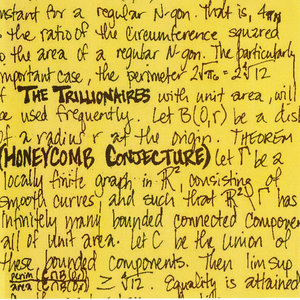 nstant for a regular N-gon. That is, 4πN
the ratio of the circumference squared
to the area of a regular N-gon. The particularly
mportant case, the perimeter 2√π₆ = 2∜12
f THE TRILLIONAIRES with unit area, will
be used frequently. Let B(0,r) be a dis
of a radius r at the origin. THEOREM
(HONEYCOMB CONJECTURE) Let Γ be a
locally finite graph in ℝ², consisting of
smooth curves, and such that ℝ²\Γ has
infinitely many bounded connected componen
all of unit area. Let C be the union of
these bounded components. Then lim sup
perim (C∩B(0,r)
area (C∩B(0,r) ≥ ∜12. Equality is attained